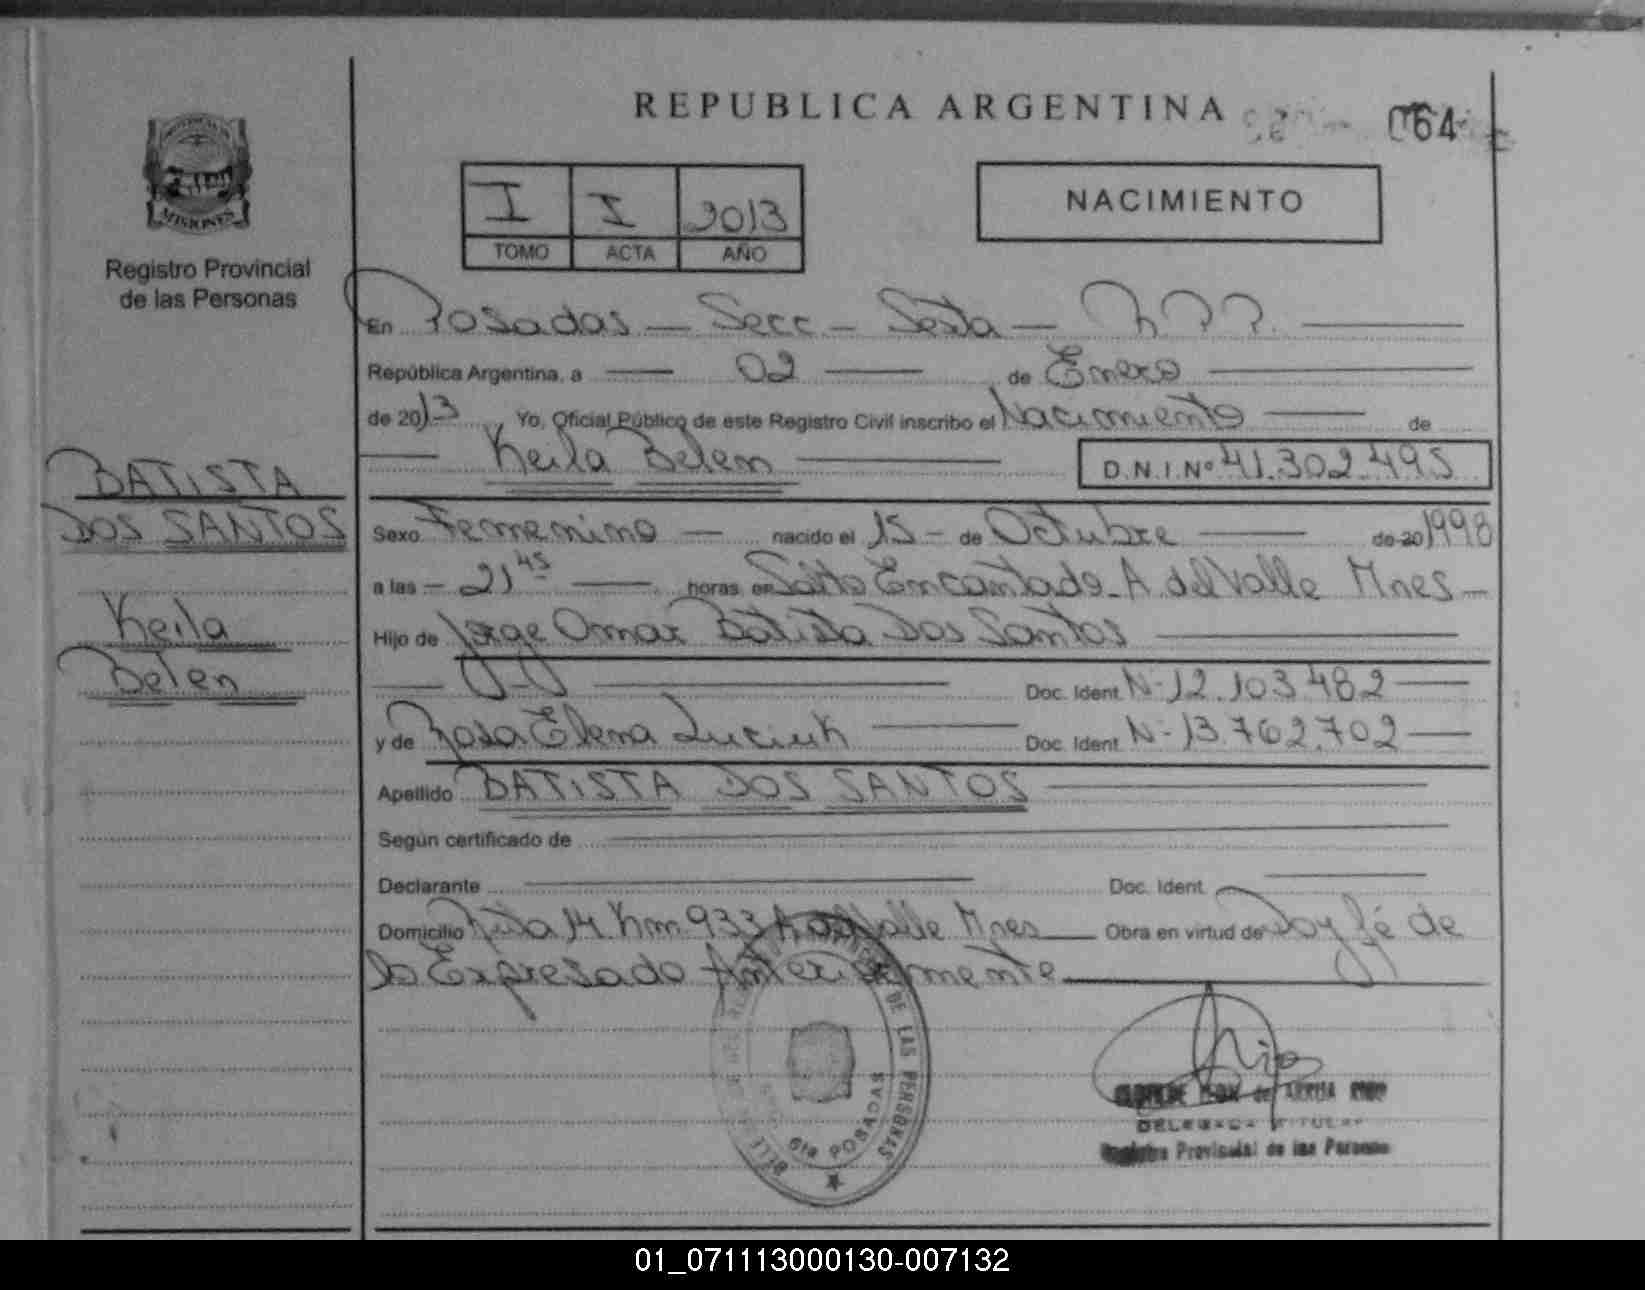 REPUBLICA ARGENTINA
064
PROVINCIA DE
MISIONES
Registro Provincial
de las Personas
I I 2013
TOMO ACTA AÑO
NACIMIENTO
En Posadas - Secc - Sexta -
República Argentina, a 02 de Enero
de 2013, Yo, Oficial Público de este Registro Civil inscribo el Nacimiento de
Keila Belem D.N.I.Nº 41.302.495
BATISTA
DOS SANTOS
Keila
Belen
Sexo Femenino - nacido el 15 - de Octubre de 20 1998
a las - 21 45 horas en Salto Encantado - A. del Valle Mnes -
Hijo de Jorge Omar Batista Dos Santos
Doc. Ident. Nº 12.103.482
y de Rosa Elena Luciuk Doc. Ident. Nº 13.762.702
Apellido BATISTA DOS SANTOS
Según certificado de
Declarante Doc. Ident.
Domicilio Ruta 14 Km 933 A del Valle Mnes Obra en virtud de Doy fé de
lo Expresado Anteriormente
DE LAS PERSONAS
6ta POSADAS
Registro Provincial de las Personas
01_071113000130-007132